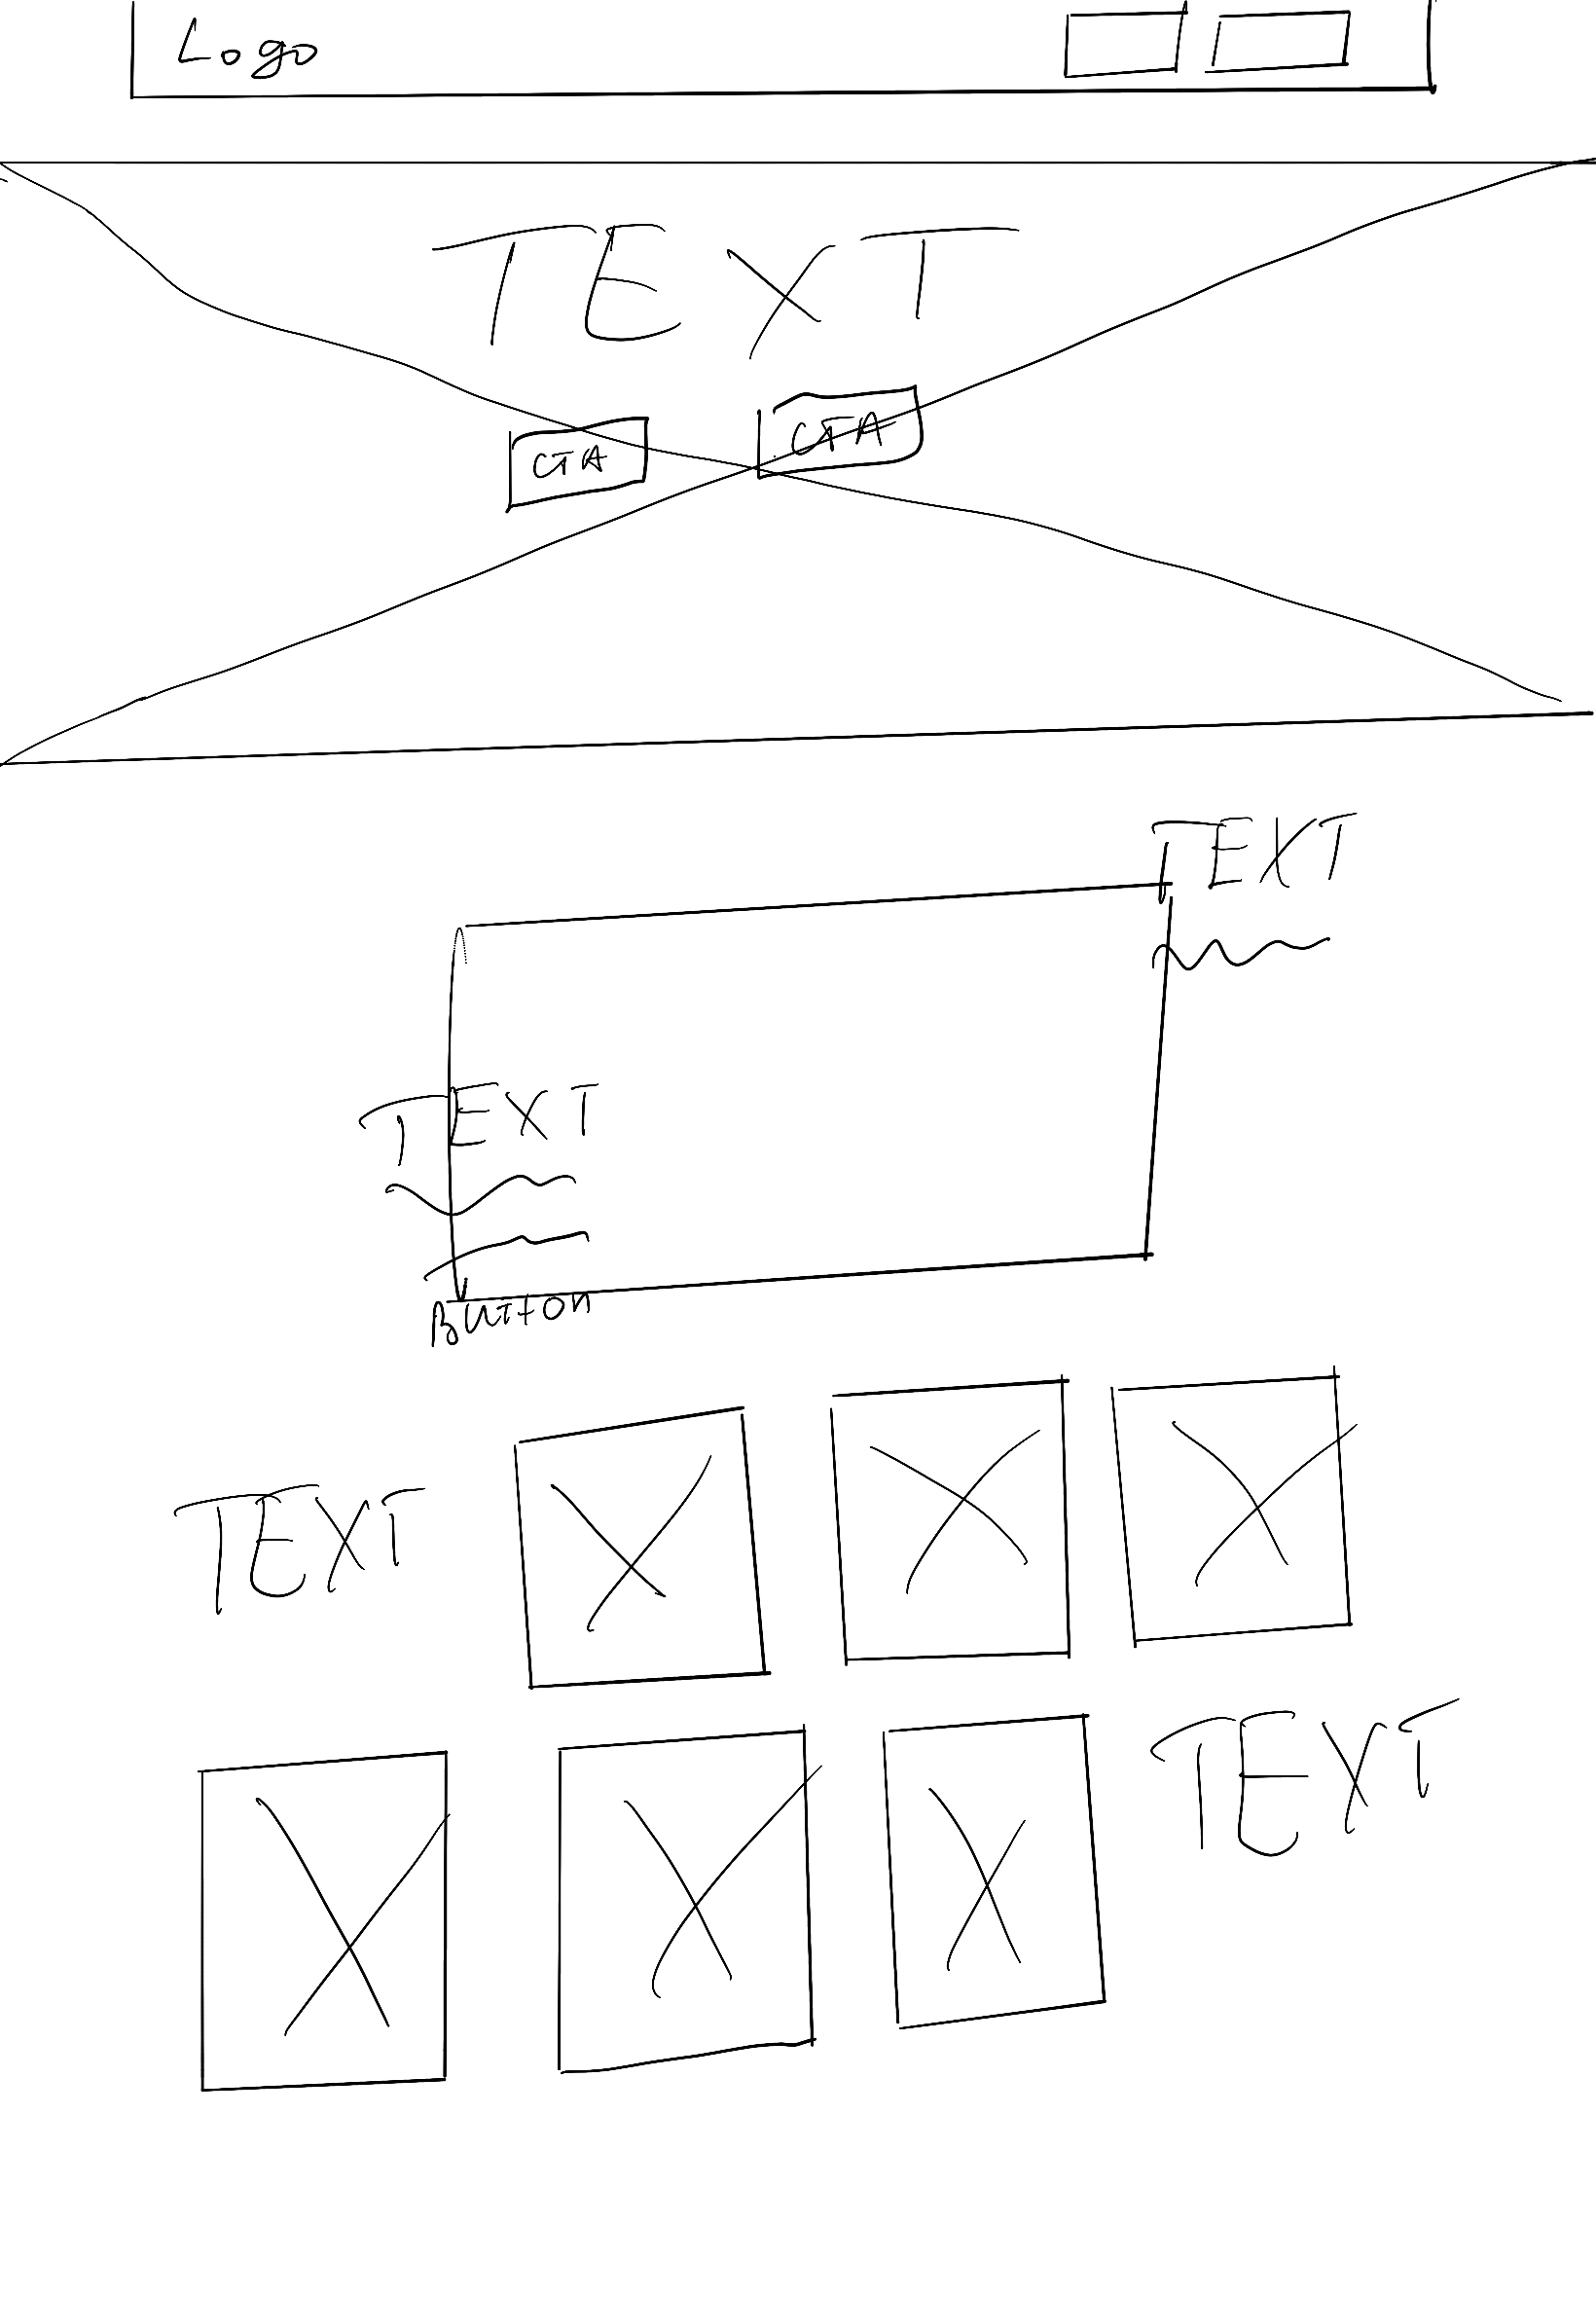 Logo
TEXT
CTA CTA
TEXT
TEXT
Button
TEXT
TEXT